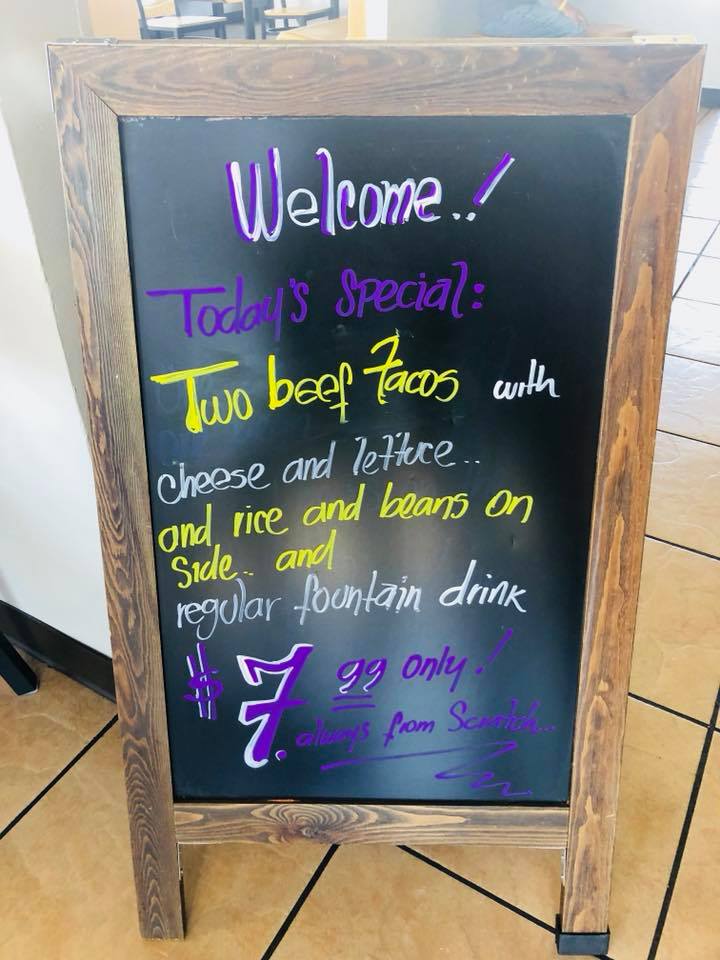 Welcome..!
Today's Special:
Two beef Tacos with
cheese and lettuce..
and rice and beans on
Side.. and
regular fountain drink
$7.99 only!
always from Scratch..